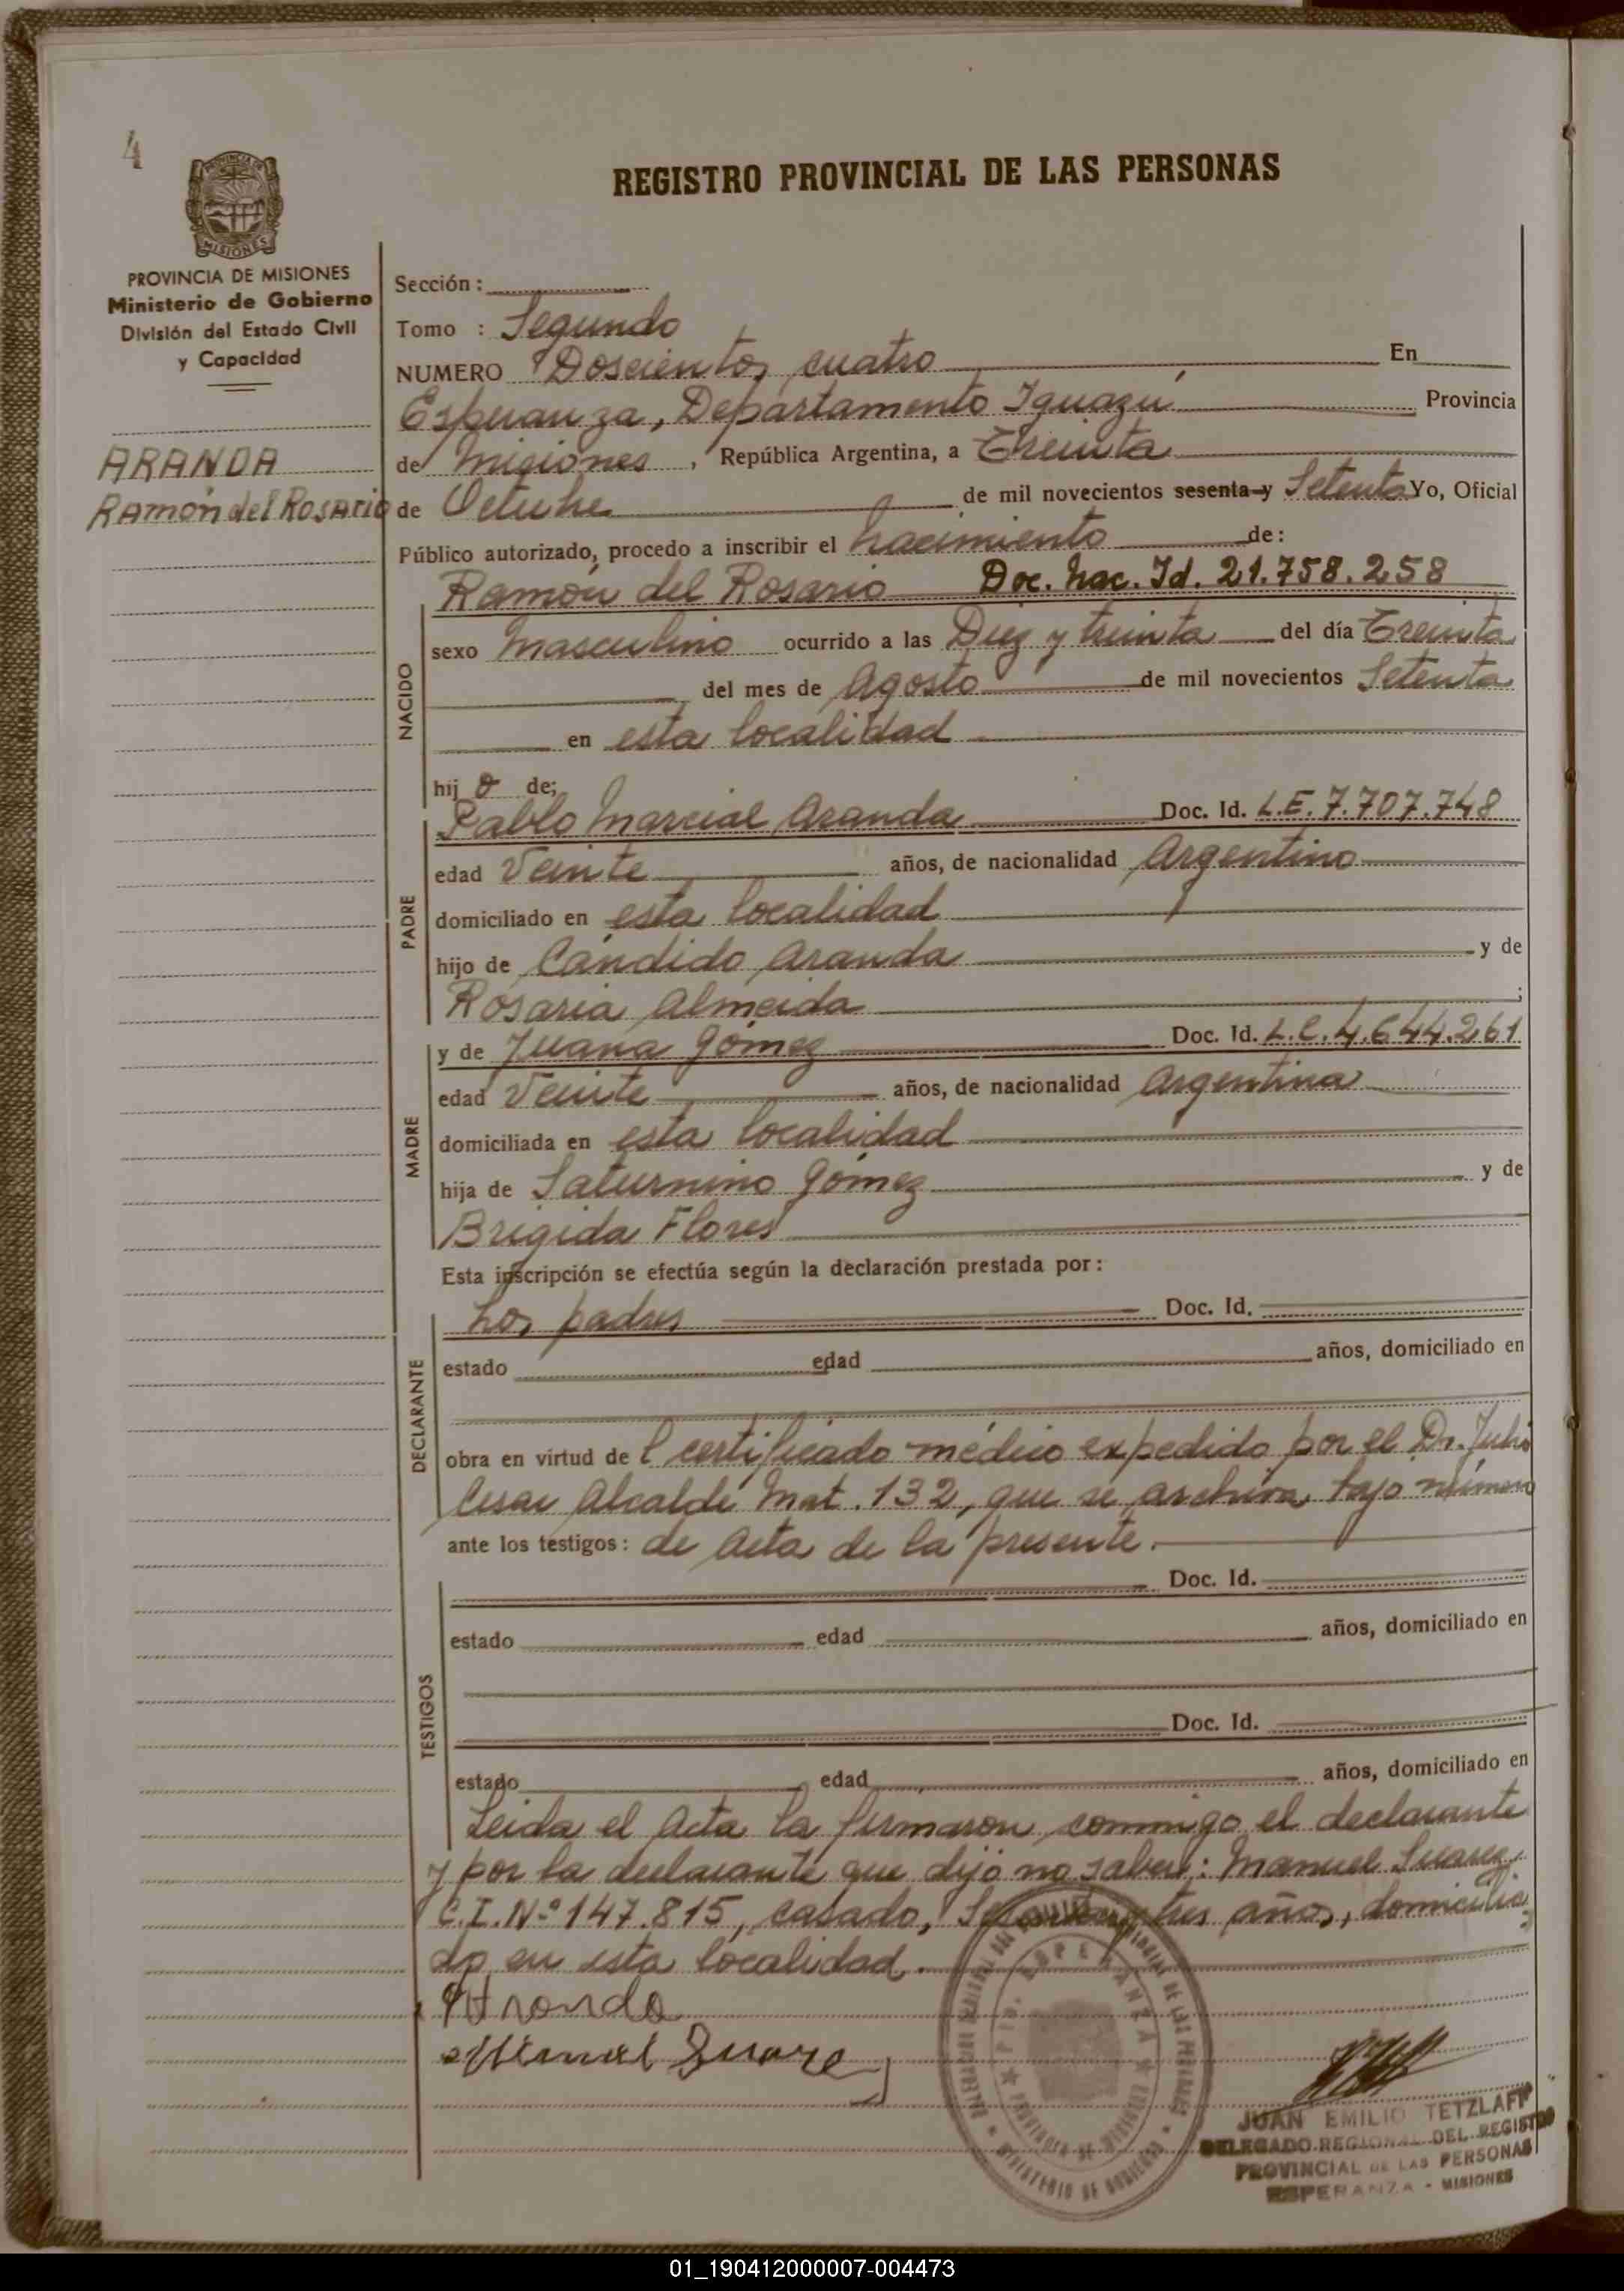 4
PROVINCIA DE
MISIONES
REGISTRO PROVINCIAL DE LAS PERSONAS
PROVINCIA DE MISIONES
Ministerio de Gobierno
División del Estado Civil
y Capacidad
ARANDA
Ramón del Rosario
Sección :
Tomo : Segundo
NUMERO Doscientos cuatro En
Esperanza, Departamento Iguazú Provincia
de Misiones, República Argentina, a Treinta
de Octubre de mil novecientos sesenta y Setenta Yo, Oficial
Público autorizado, procedo a inscribir el nacimiento de:
Ramón del Rosario Doc. Nac. Id. 21.758.258
NACIDO
sexo masculino ocurrido a las Diez y treinta del día Treinta
del mes de Agosto de mil novecientos Setenta
en esta localidad
hijo de;
PADRE
Pablo Marcial Aranda Doc. Id. L.E. 7.707.748
edad Veinte años, de nacionalidad Argentino
domiciliado en esta localidad
hijo de Cándido Aranda y de
Rosaria Almeida ;
MADRE
y de Juana Gómez Doc. Id. L.C. 4.644.261
edad Veinte años, de nacionalidad Argentina
domiciliada en esta localidad
hija de Saturnino Gómez y de
Brigida Flores
Esta inscripción se efectúa según la declaración prestada por :
DECLARANTE
Los padres Doc. Id.
estado edad años, domiciliado en
obra en virtud de l certificado médico expedido por el Dr. Julio
Cesar Alcalde Mat. 132, que se archiva bajo número
ante los testigos : de Acta de la presente.
TESTIGOS
Doc. Id.
estado edad años, domiciliado en
Doc. Id.
estado edad años, domiciliado en
Leida el Acta la firmaron conmigo el declarante
y por la declarante que dijo no saber: Manuel Suarez
C.I. Nº 147.815, casado, y tres años, domicilia
do en esta localidad.
Manuel Suarez
ESPERANZA
PROVINCIA DE MISIONES
MINISTERIO DE GOBIERNO
JUAN EMILIO TETZLAFF
DELEGADO REGIONAL DEL REGISTRO
PROVINCIAL DE LAS PERSONAS
ESPERANZA - MISIONES
01_190412000007-004473